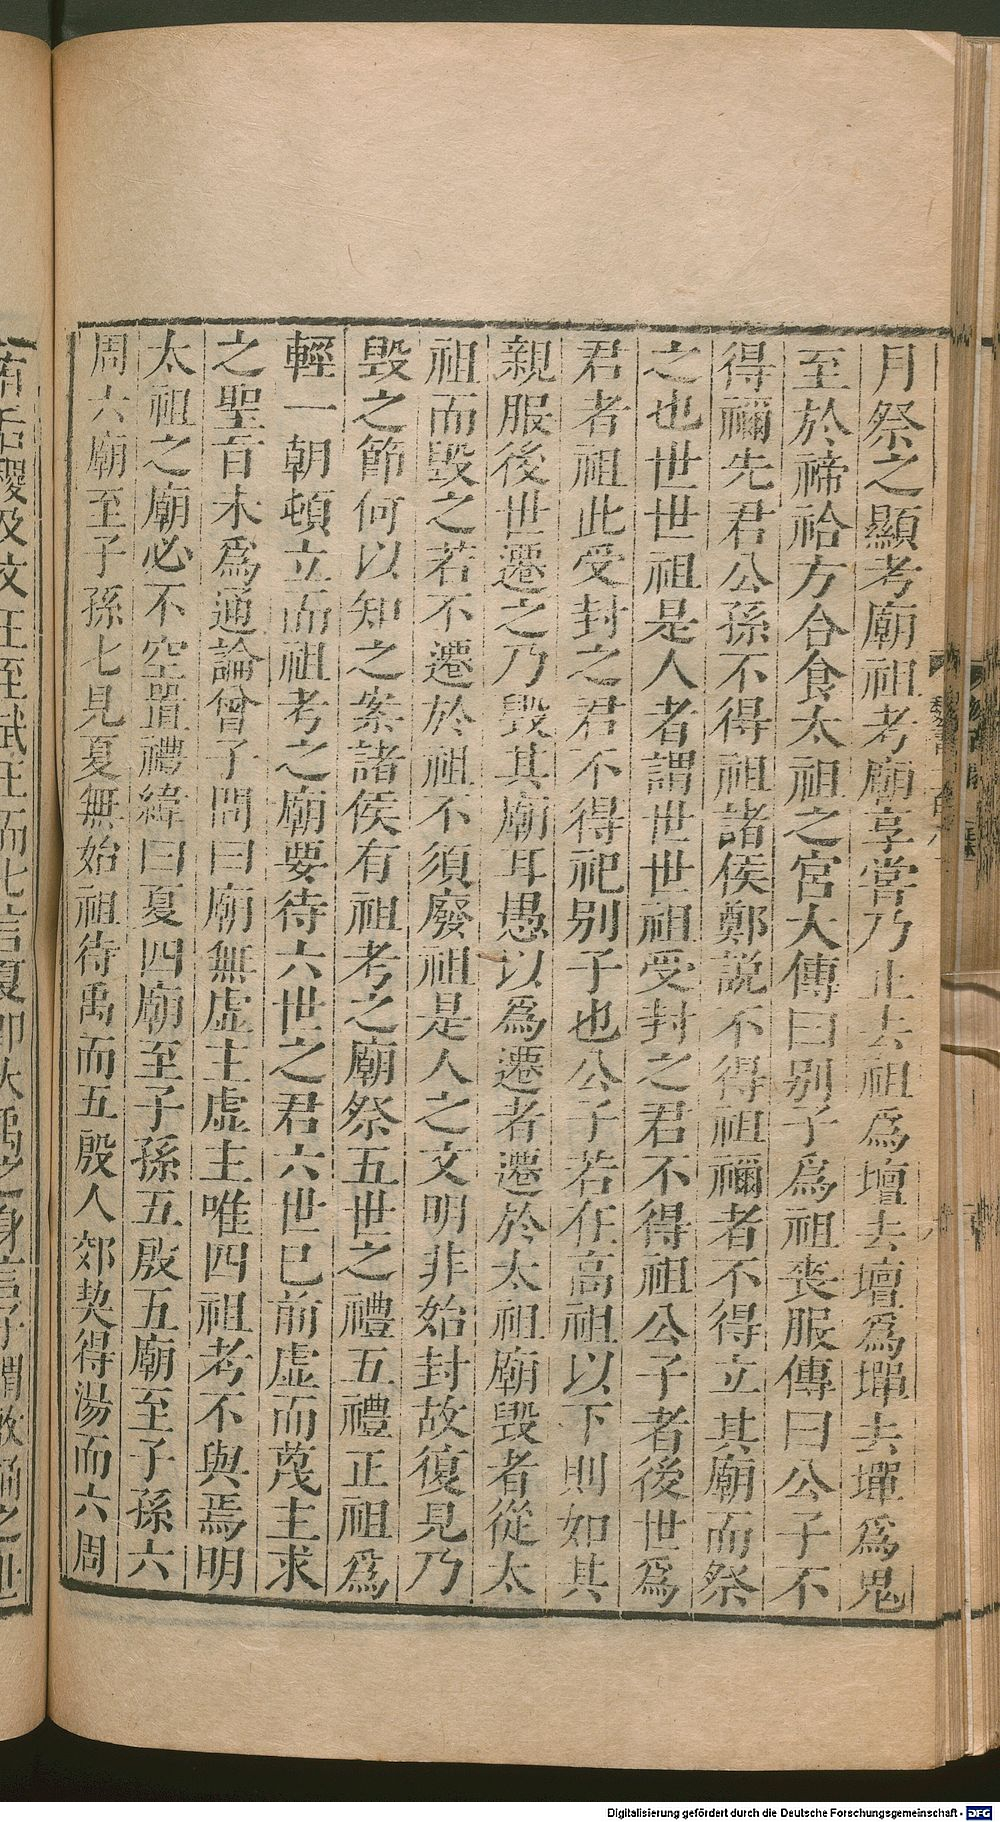 月祭之顯考廟祖考廟享嘗乃止去祖爲壇去壇爲墠去墠爲鬼
至於禘祫方合食太祖之宮大傳曰别子爲祖喪服傳曰公子不
得禰先君公孫不得祖諸侯鄭説不得祖禰者不得立其廟而祭
之也世世祖是人者謂世世祖受封之君不得祖公子者後世爲
君者祖此受封之君不得祀别子也公子若在高祖以下則如其
親服後世遷之乃毁其廟耳愚以爲遷者遷於太祖廟毁者從太
祖而毁之若不遷於祖不須廢祖是人之文明非始封故復見乃
毁之節何以知之案諸侯有祖考之廟祭五世之禮五禮正祖爲
輕一朝頓立而祖考之廟要待六世之君六世已前虚而蔑主求
之聖旨未爲通論曾子問曰廟無虚主虚主唯四祖考不與焉明
太祖之廟必不空置禮緯曰夏四廟至子孫五殷五廟至子孫六
周六廟至子孫七見夏無始祖待禹而五殷人郊契得湯而六周
Digitalisierung gefördert durch die Deutsche Forschungsgemeinschaft - DFG